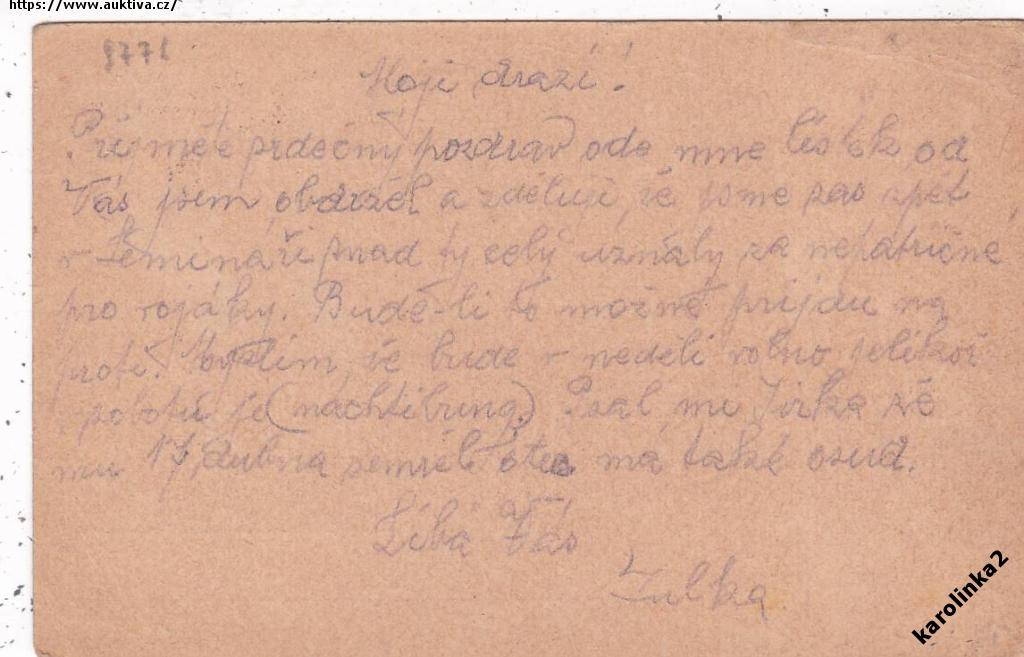 https://www.auktiva.cz/
9771
Moji drazí!
Přijměte srdečný pozdrav ode mne lístek od
Vás jsem obdržel a zděluji, že jsme zas zpět
v semináři snad ty celý uznaly za nepatřičné
pro vojáky. Bude-li to možné prijdu na
Myslím, že bude v neděli volno jelikož
v sobotu je (nachtibung) Psal mi Jirka že
mu 17, dubna zemřel otec má také osud.
Líbá Vás
Julka
karolinka2